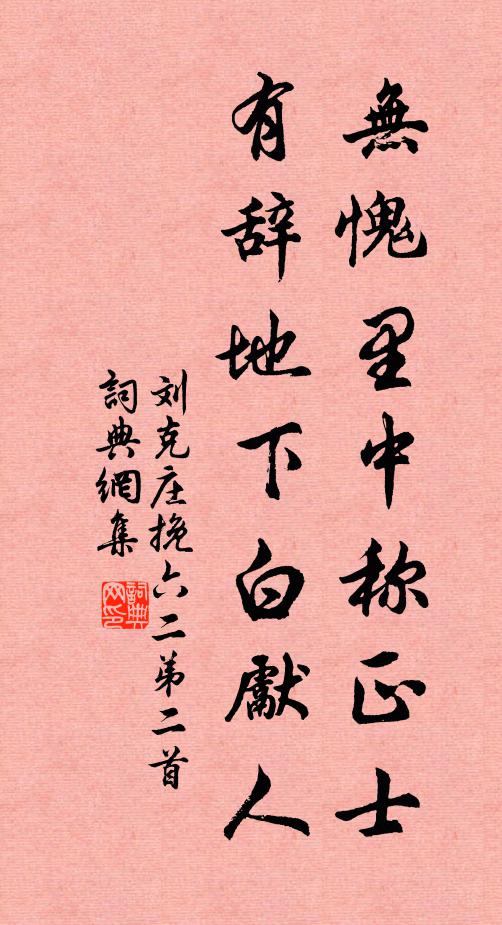 無愧里中称正士
有辞地下白獻人
刘克庄挽六二弟二首
詞典網集
詞典网印